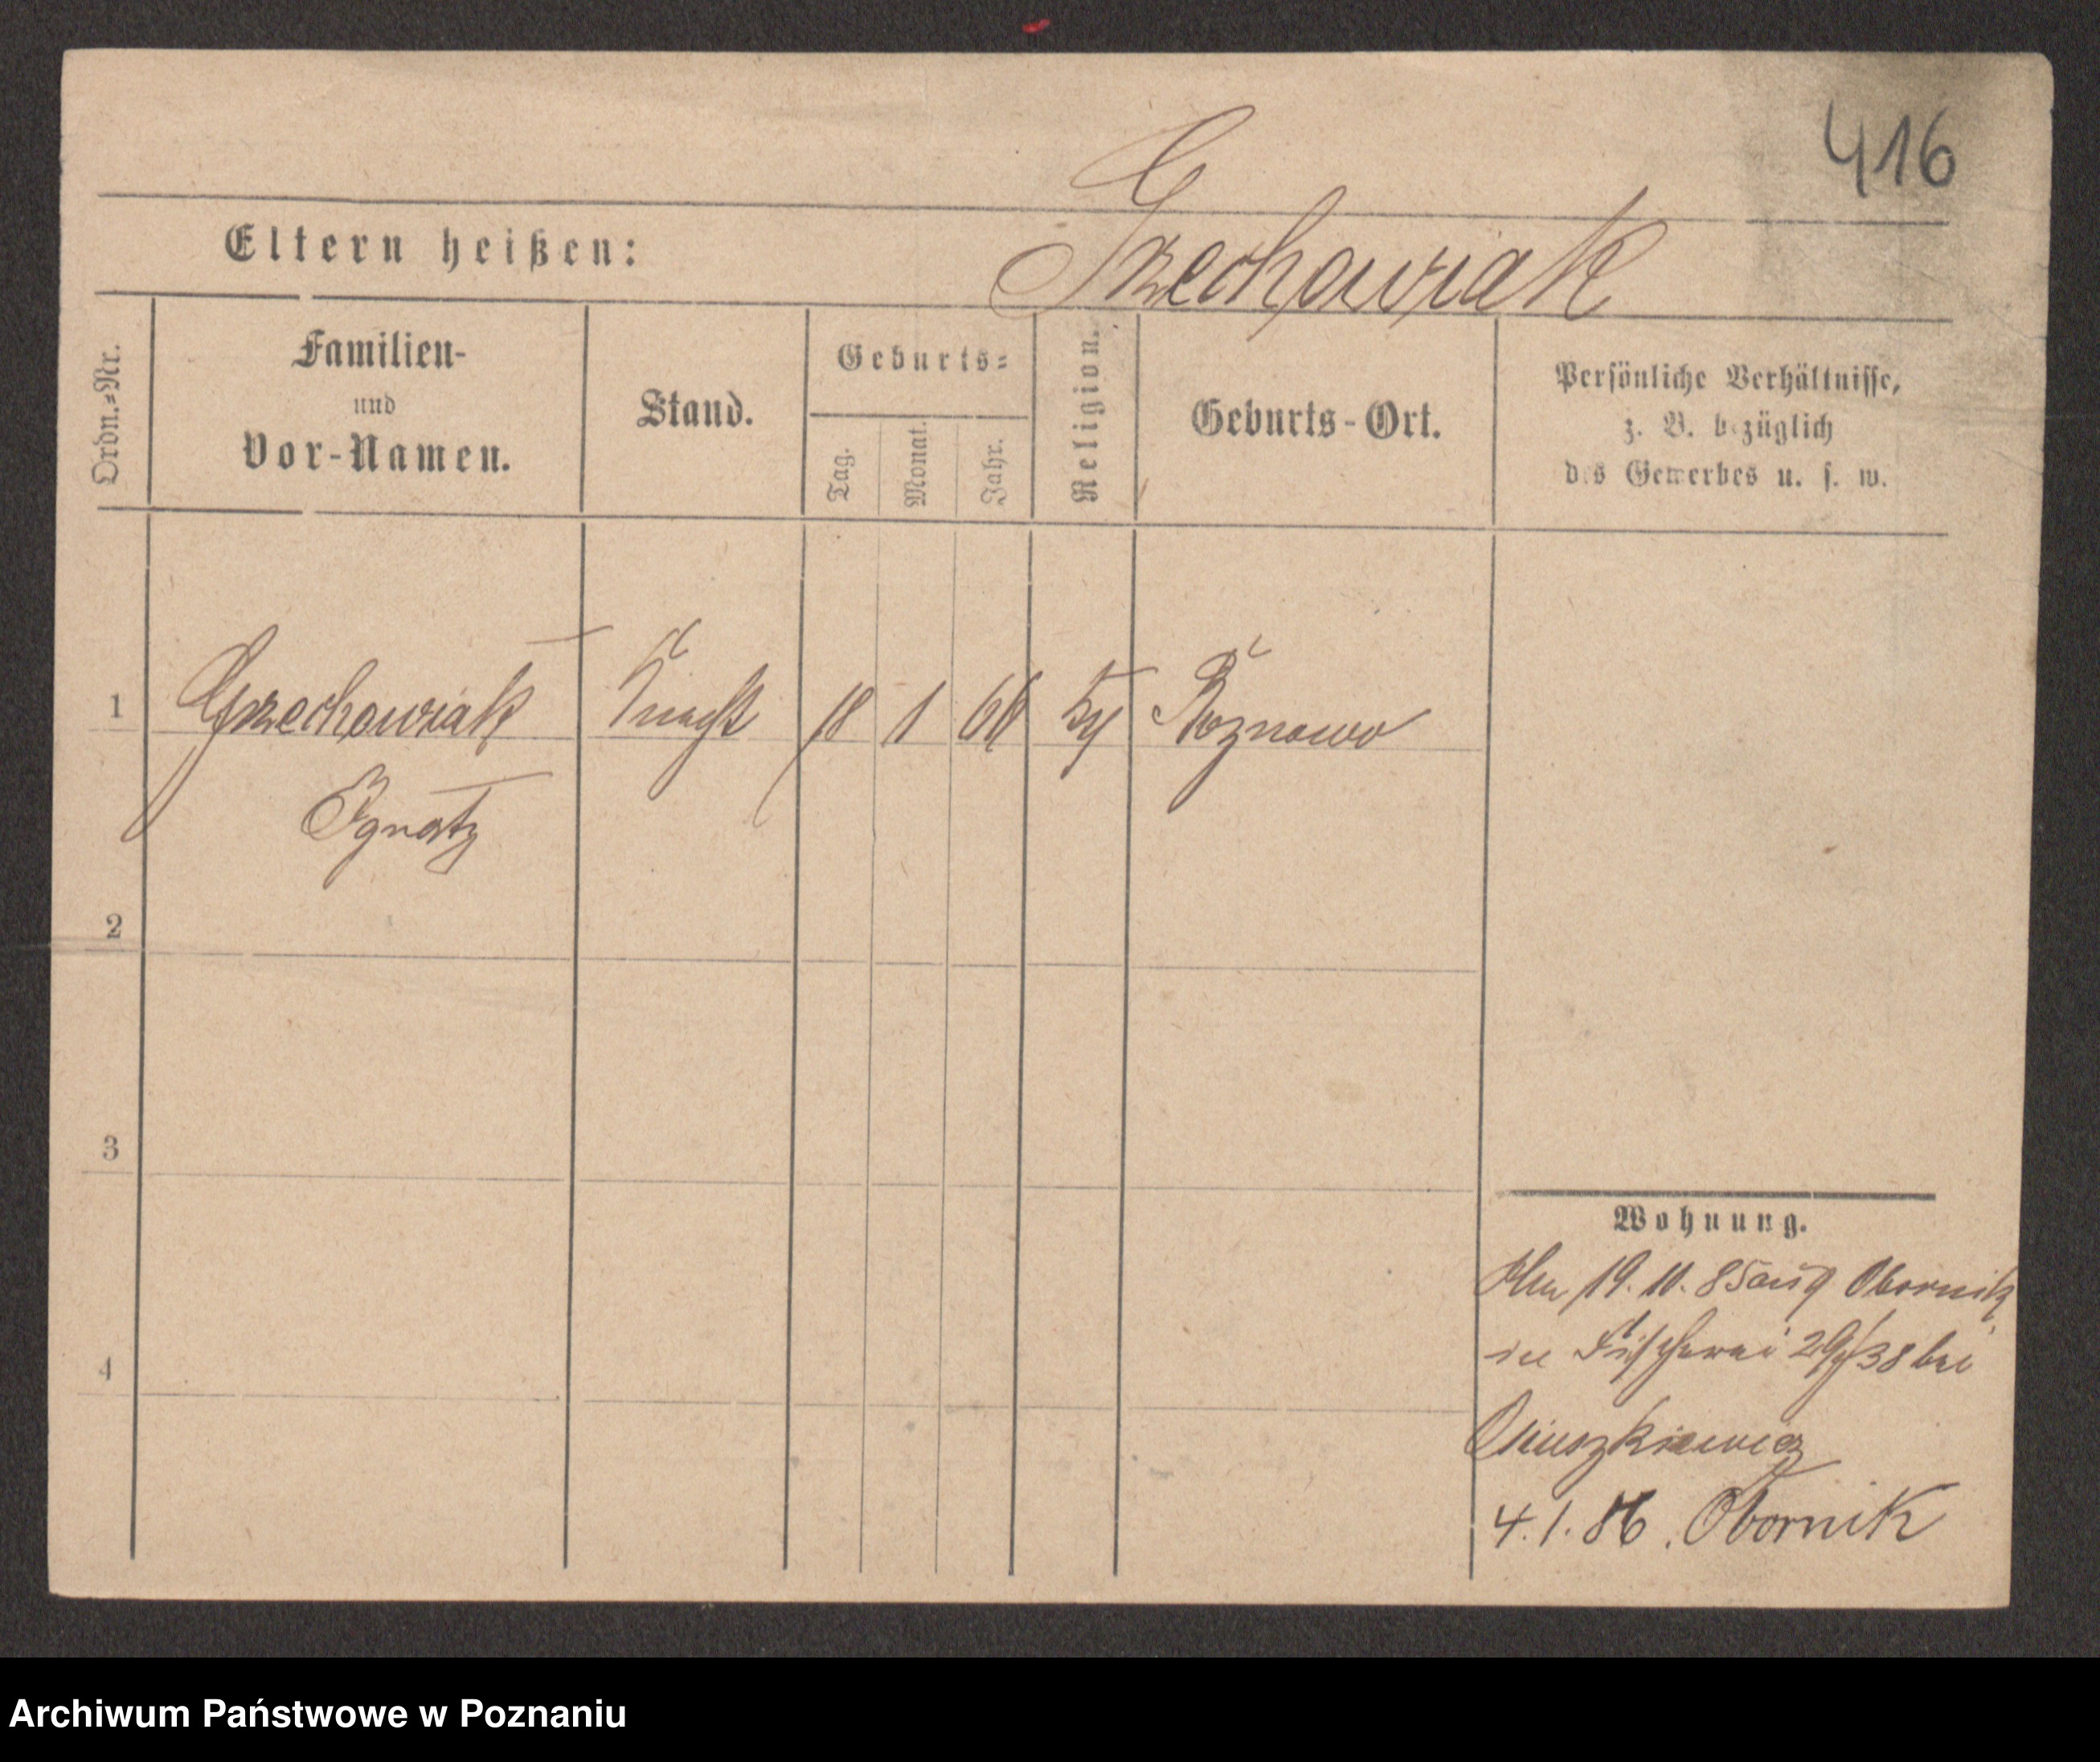 416
Grzechowiak
Eltern heißen:
Ordn.=Nr.
Familien-
und
Vor-Namen.
Stand.
Geburts=
Tag.
Monat.
Jahr.
Religion.
Geburts-Ort.
Persönliche Verhältnisse,
z. B. bezüglich
des Gewerbes u. s. w.
1 Grzechowiak Knecht 18 1 66 Roznowo
Ignatz
2
3
4
Wohnung.
19. 10. 85 aus Obornik
in Fischerei 29/38 bei
4.1.86. Obornik
Archiwum Państwowe w Poznaniu